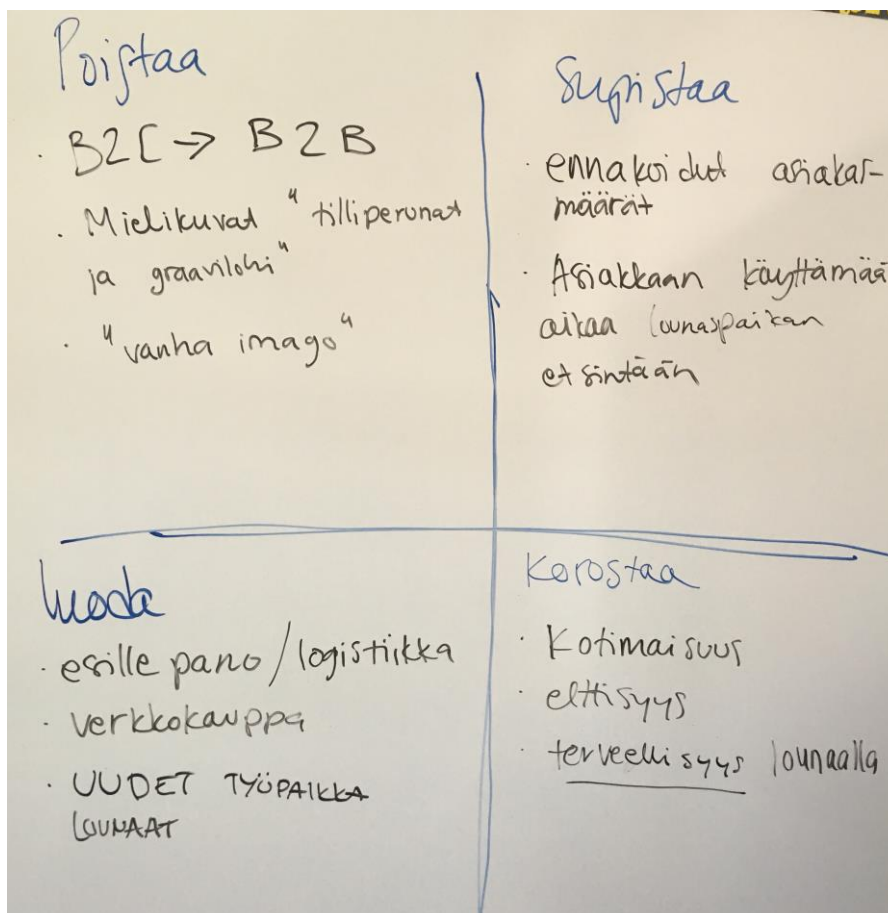 Poistaa
· B2C → B2B
· Mielikuvat "tilliperunat
ja graavilohi"
· "vanha imago"
Supistaa
· ennakoidut asiakas-
määrät
· Asiakkaan käyttämää
aikaa lounaspaikan
etsintään
Luoda
· esille pano/logistiikka
· verkkokauppa
· UUDET TYÖPAIKKA
LOUNAAT
Korostaa
· Kotimaisuus
· eettisyys
· terveellisyys lounaalla